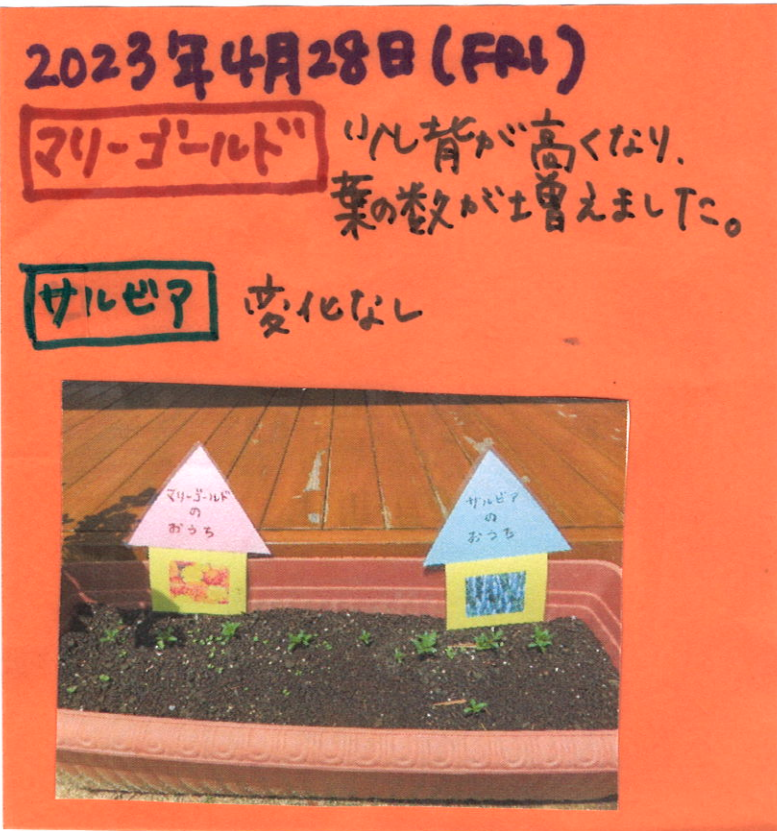 2023年4月28日(FRI)
マリーゴールド 少し背が高くなり、
葉の数が増えました。
サルビア 変化なし
マリーゴールド
の
おうち
サルビア
の
おうち